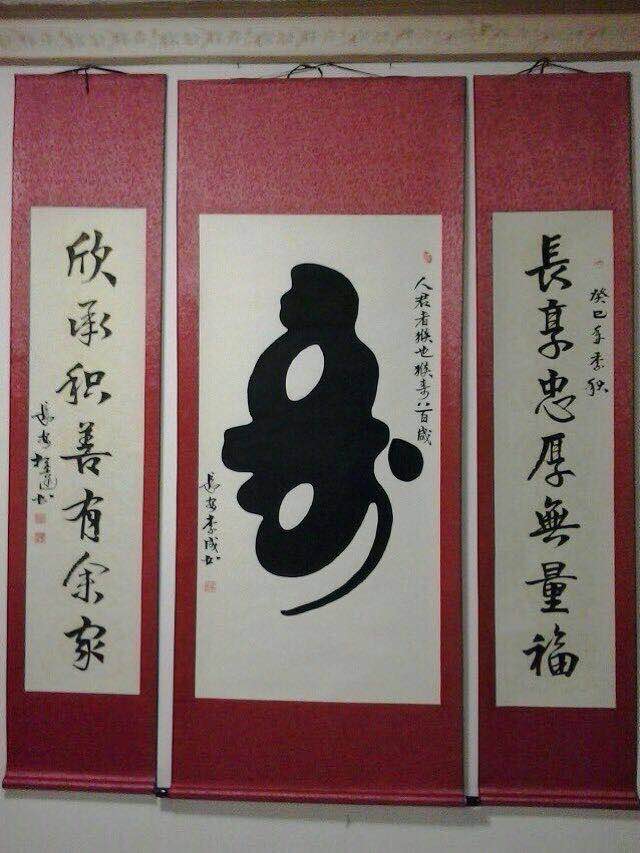 癸巳年季秋
長享忠厚無量福
人君者猴也猴寿八百歲
寿
长安李成书
欣承积善有余家
长安